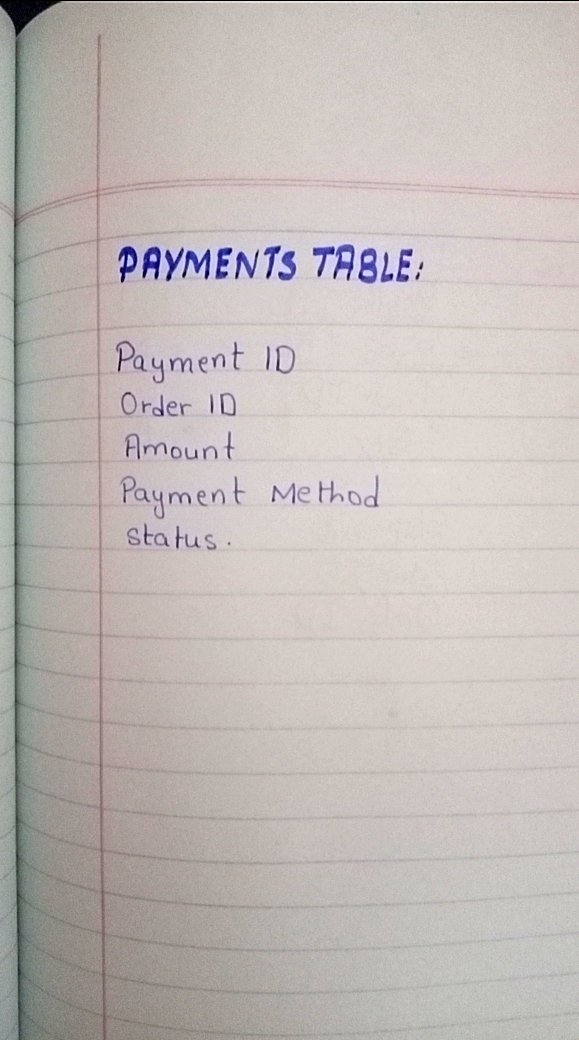 PAYMENTS TABLE:
Payment ID
Order ID
Amount
Payment Method
status.